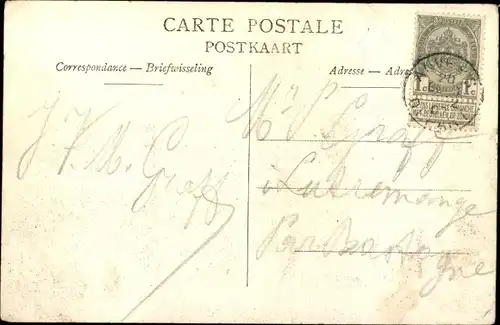 CARTE POSTALE
POSTKAART
Correspondance — Briefwisseling
Adresse — Adres
1c 1c
J. V. M. Graff
Mr P. Graff
à Lutremange
Par Bastogne